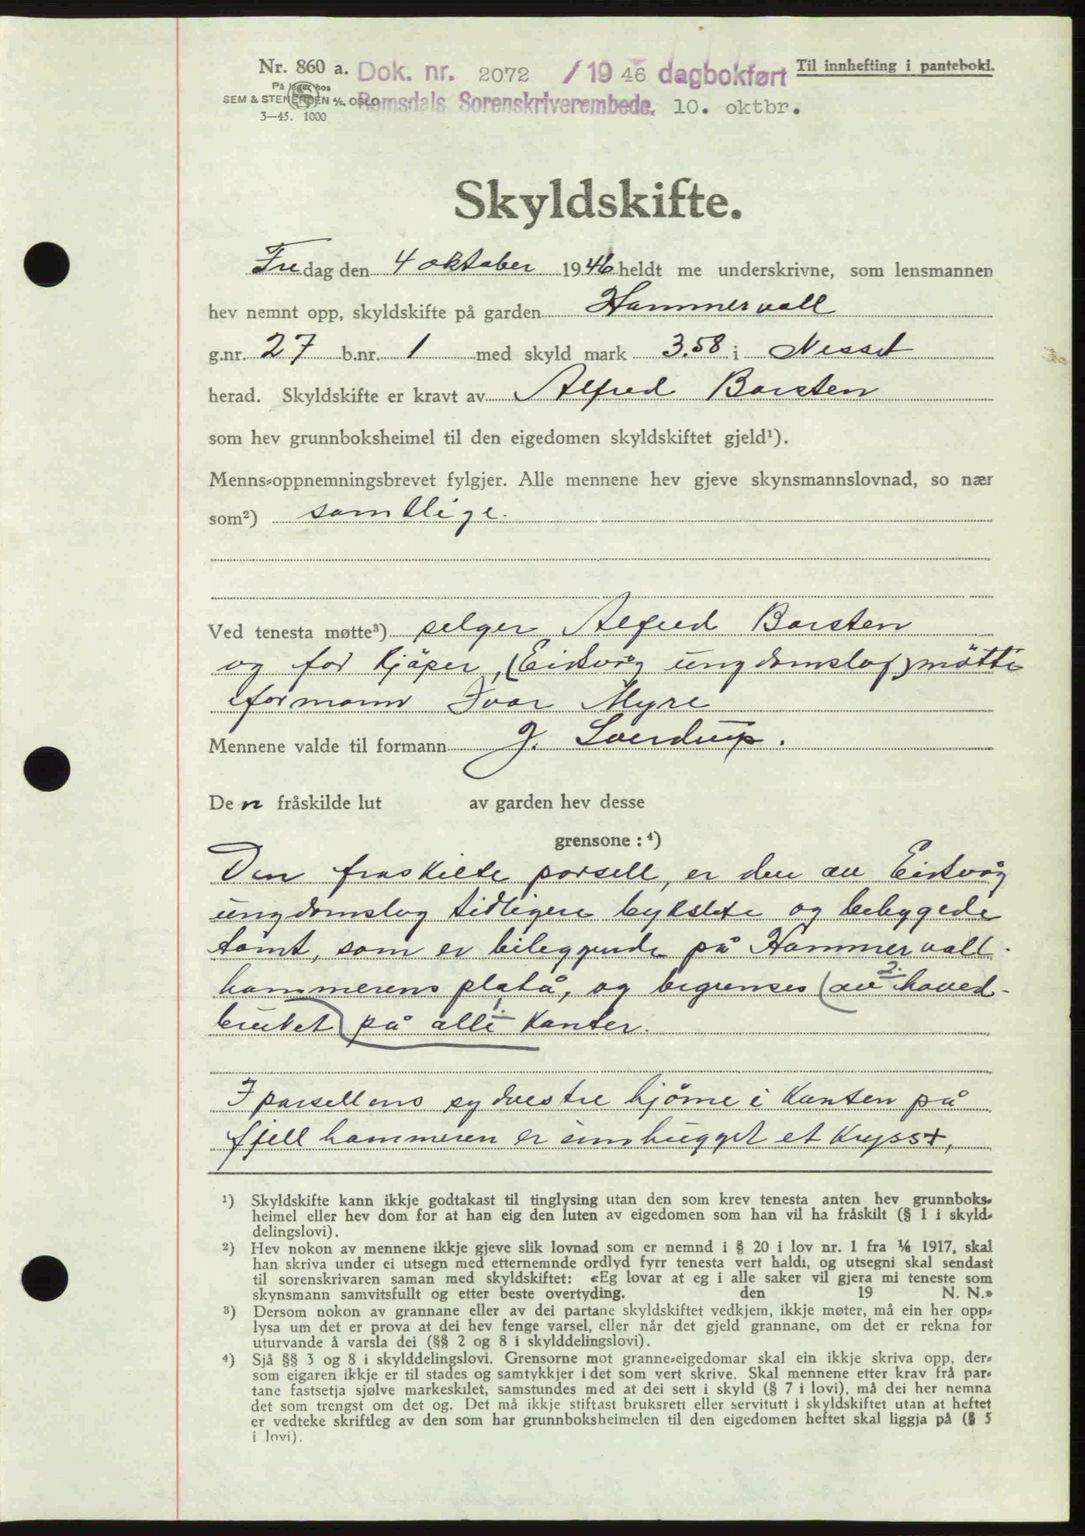 Nr. 860 a. Dok. nr. 2072 / 19 46 dagbokført Til innhefting i panteboki.
På lager hos
SEM & STENERSEN A/S, OSLO Romsdals Sorenskriverembede. 10. oktbr.
3—45. 1000
Skyldskifte.
Fredag den 4 oktober 1946 heldt me underskrivne, som lensmannen
hev nemnt opp, skyldskifte på garden Hammervoll
g.nr. 27 b.nr. 1 med skyld mark 3.58 i Nesset
herad. Skyldskifte er kravt av Alfred Borsten
som hev grunnboksheimel til den eigedomen skyldskiftet gjeld¹).
Menns-oppnemningsbrevet fylgjer. Alle mennene hev gjeve skynsmannslovnad, so nær
som²) samtlige.
Ved tenesta møtte³) selger Alfred Borsten
og for kjøper, (Eidsvåg ungdomslag) møtte
formann Ivar Myre
Mennene valde til formann J. Sverdrup.
Den fråskilde lut av garden hev desse
grensone : ⁴)
Den fraskilte parsell, er den av Eidsvåg
ungdomslag tidligere bykslete og bebyggede
tomt, som er beliggende på Hammervoll-
hammerens platå, og begrenses (av 2. hoved-
bruket) på alle 1. kanter.
I parsellens sydvestre hjörne i kanten på
fjellhammeren er innhugget et kryss +,
¹) Skyldskifte kann ikkje godtakast til tinglysing utan den som krev tenesta anten hev grunnboks-
heimel eller hev dom for at han eig den luten av eigedomen som han vil ha fråskilt (§ 1 i skyld-
delingslovi).
²) Hev nokon av mennene ikkje gjeve slik lovnad som er nemnd i § 20 i lov nr. 1 fra 1/6 1917, skal
han skriva under ei utsegn med etternemnde ordlyd fyrr tenesta vert haldi, og utsegni skal sendast
til sorenskrivaren saman med skyldskiftet: «Eg lovar at eg i alle saker vil gjera mi teneste som
skynsmann samvitsfullt og etter beste overtyding. den 19 N. N.»
³) Dersom nokon av grannane eller av dei partane skyldskiftet vedkjem, ikkje møter, må ein her opp-
lysa um det er prova at dei hev fenge varsel, eller når det gjeld grannane, om det er rekna for
uturvande å varsla dei (§§ 2 og 8 i skylddelingslovi).
⁴) Sjå §§ 3 og 8 i skylddelingslovi. Grensorne mot granne-eigedomar skal ein ikkje skriva opp, der-
som eigaren ikkje er til stades og samtykkjer i det som vert skrive. Skal mennene etter krav frå par-
tane fastsetja sjølve markeskilet, samstundes med at dei sett i skyld (§ 7 i lovi), må dei her nemna
det som trengst om det og. Det må ikkje stiftast bruksrett eller servitutt i skyldskiftet utan at heftet
er vedteke skriftleg av den som har grunnboksheimelen til den eigedomen heftet skal liggja på (§ 5
i lovi).